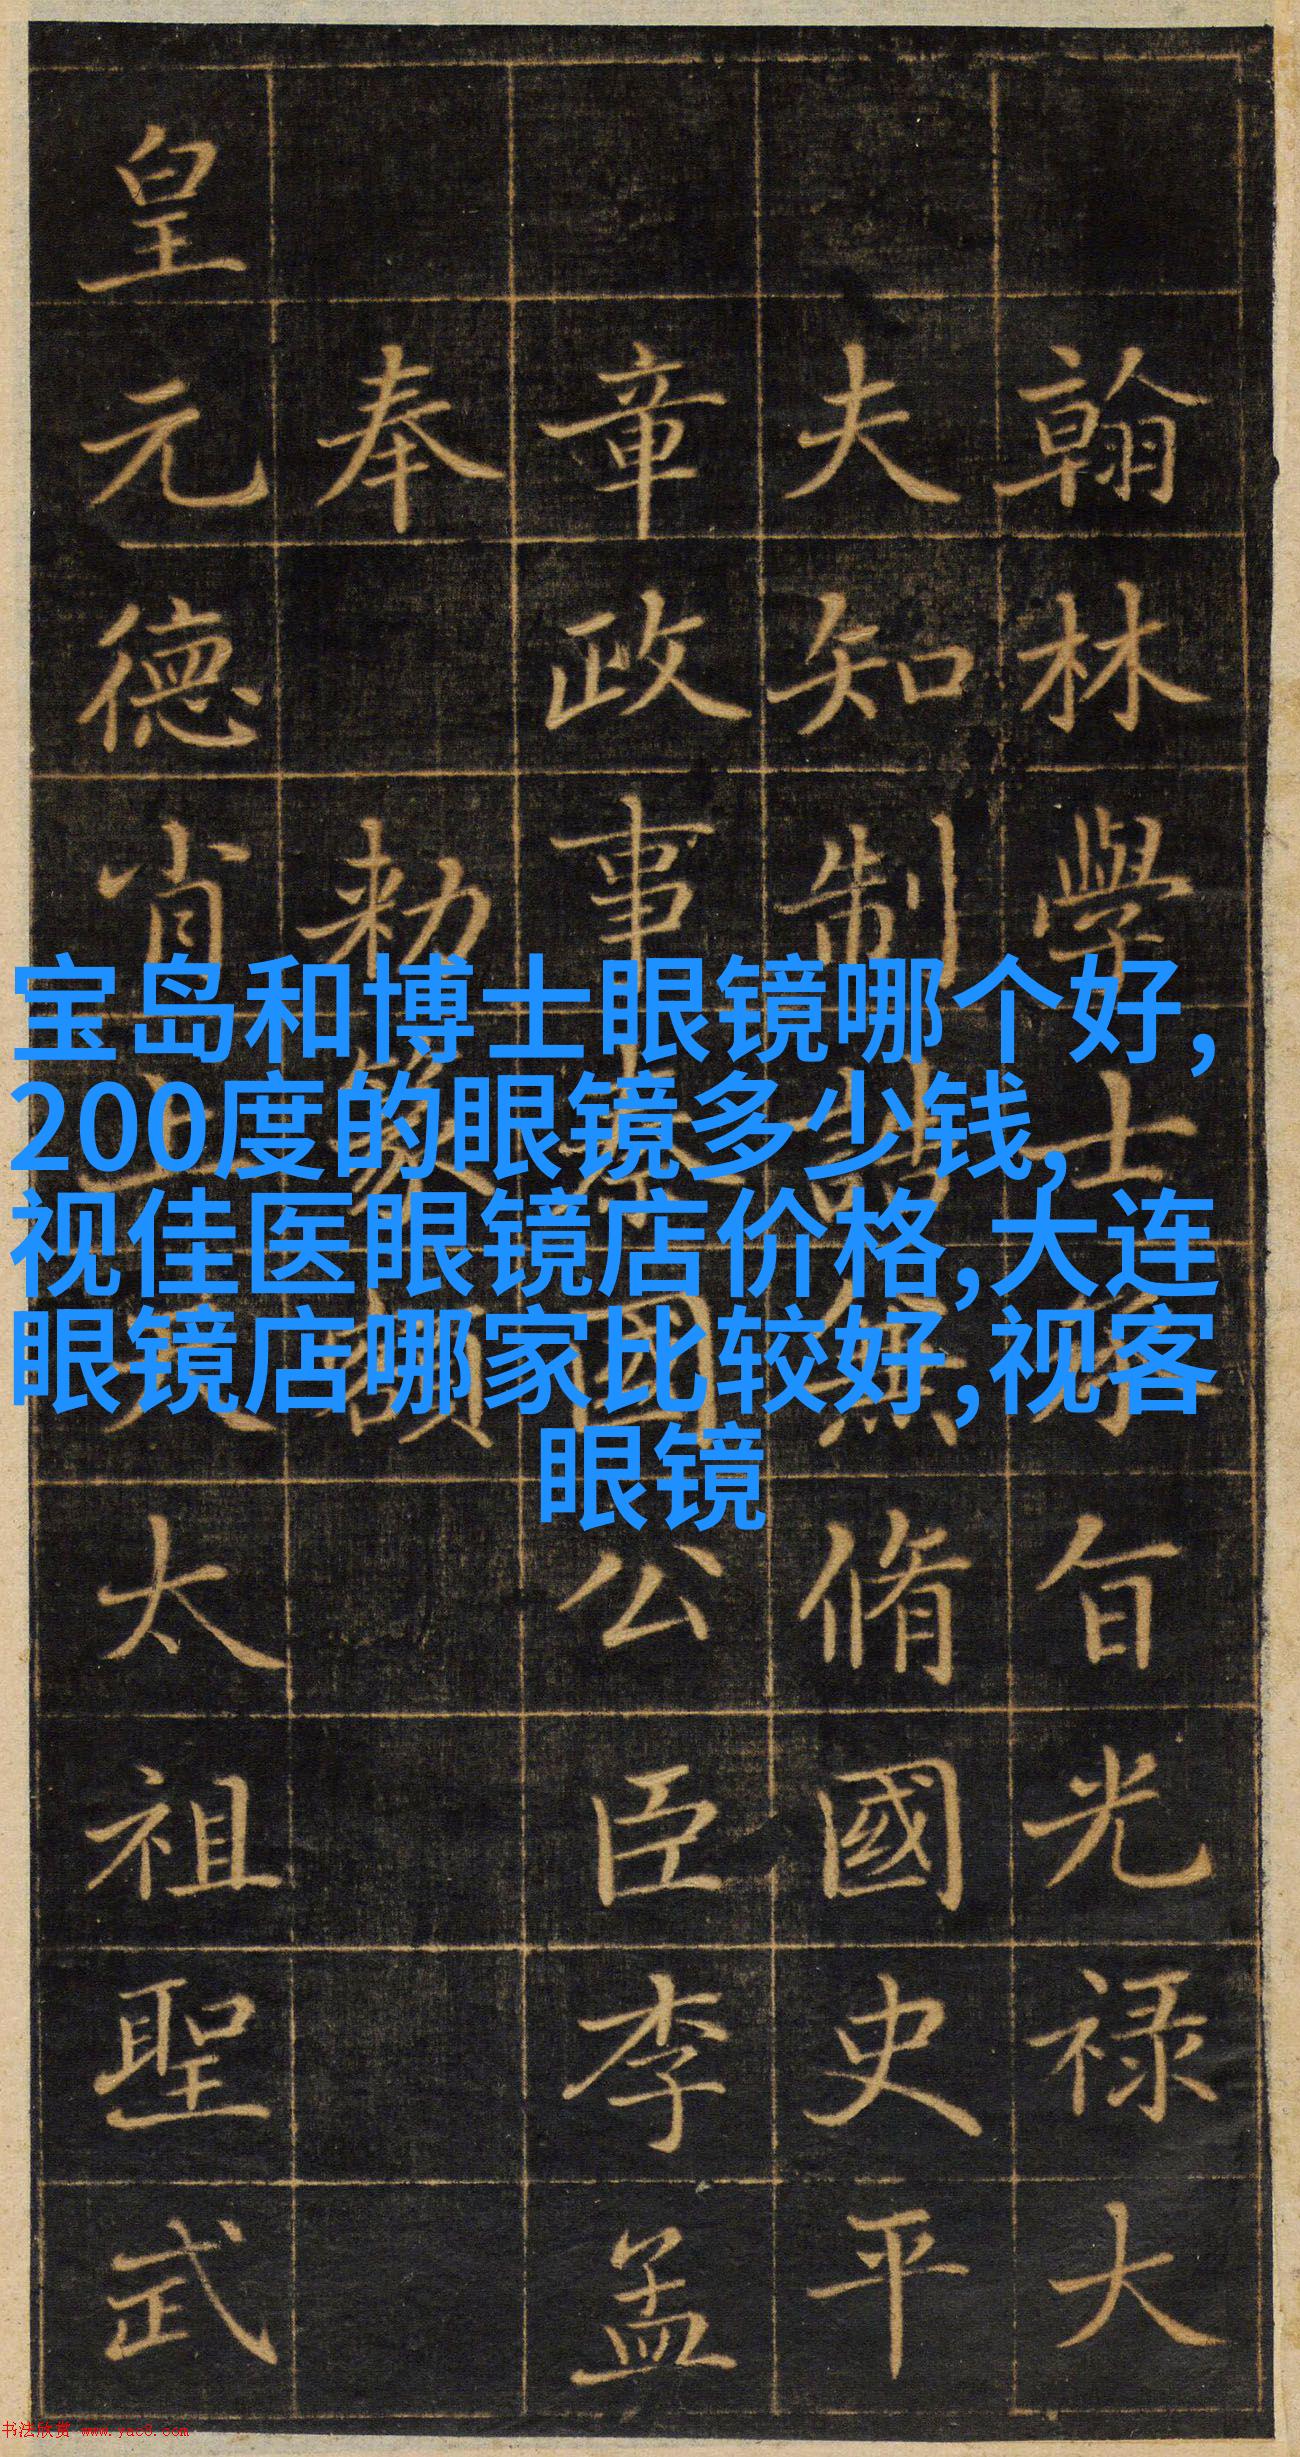 翰林學士承旨光禄大
夫知制誥兼脩國史平
章政事秦國公臣李孟
奉勑篆額
皇元德肖上天太祖聖武
宝岛和博士眼镜哪个好,
200度的眼镜多少钱,
视佳医眼镜店价格,大连
眼镜店哪家比较好,视客
眼镜
书法欣赏 www.yac8.com